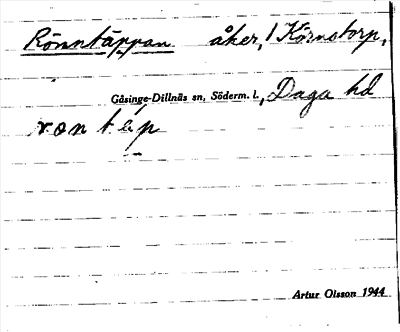 Rönntäppan åker, 1 Körnstorp,
Gåsinge-Dillnäs sn, Söderm. l., Daga hd
ron täp
Artur Olsson 1944